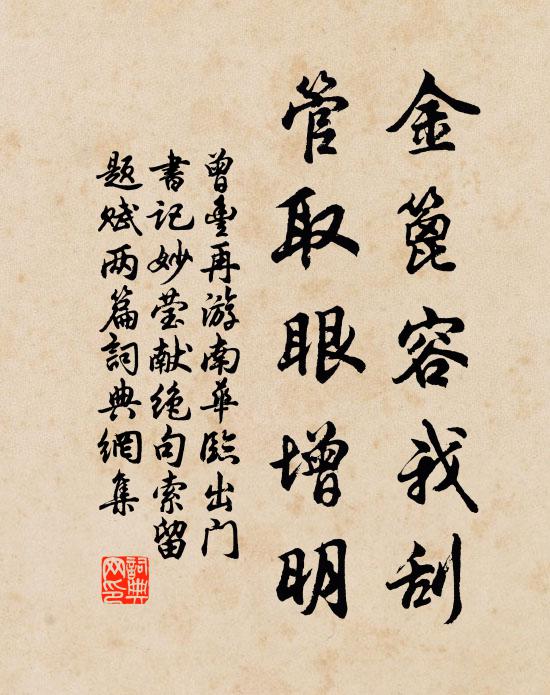 金篦容我刮
管取眼增明
曾豊再游南华临出门
书记妙莹献绝句索留
题赋两篇詞典網集
詞典
网印